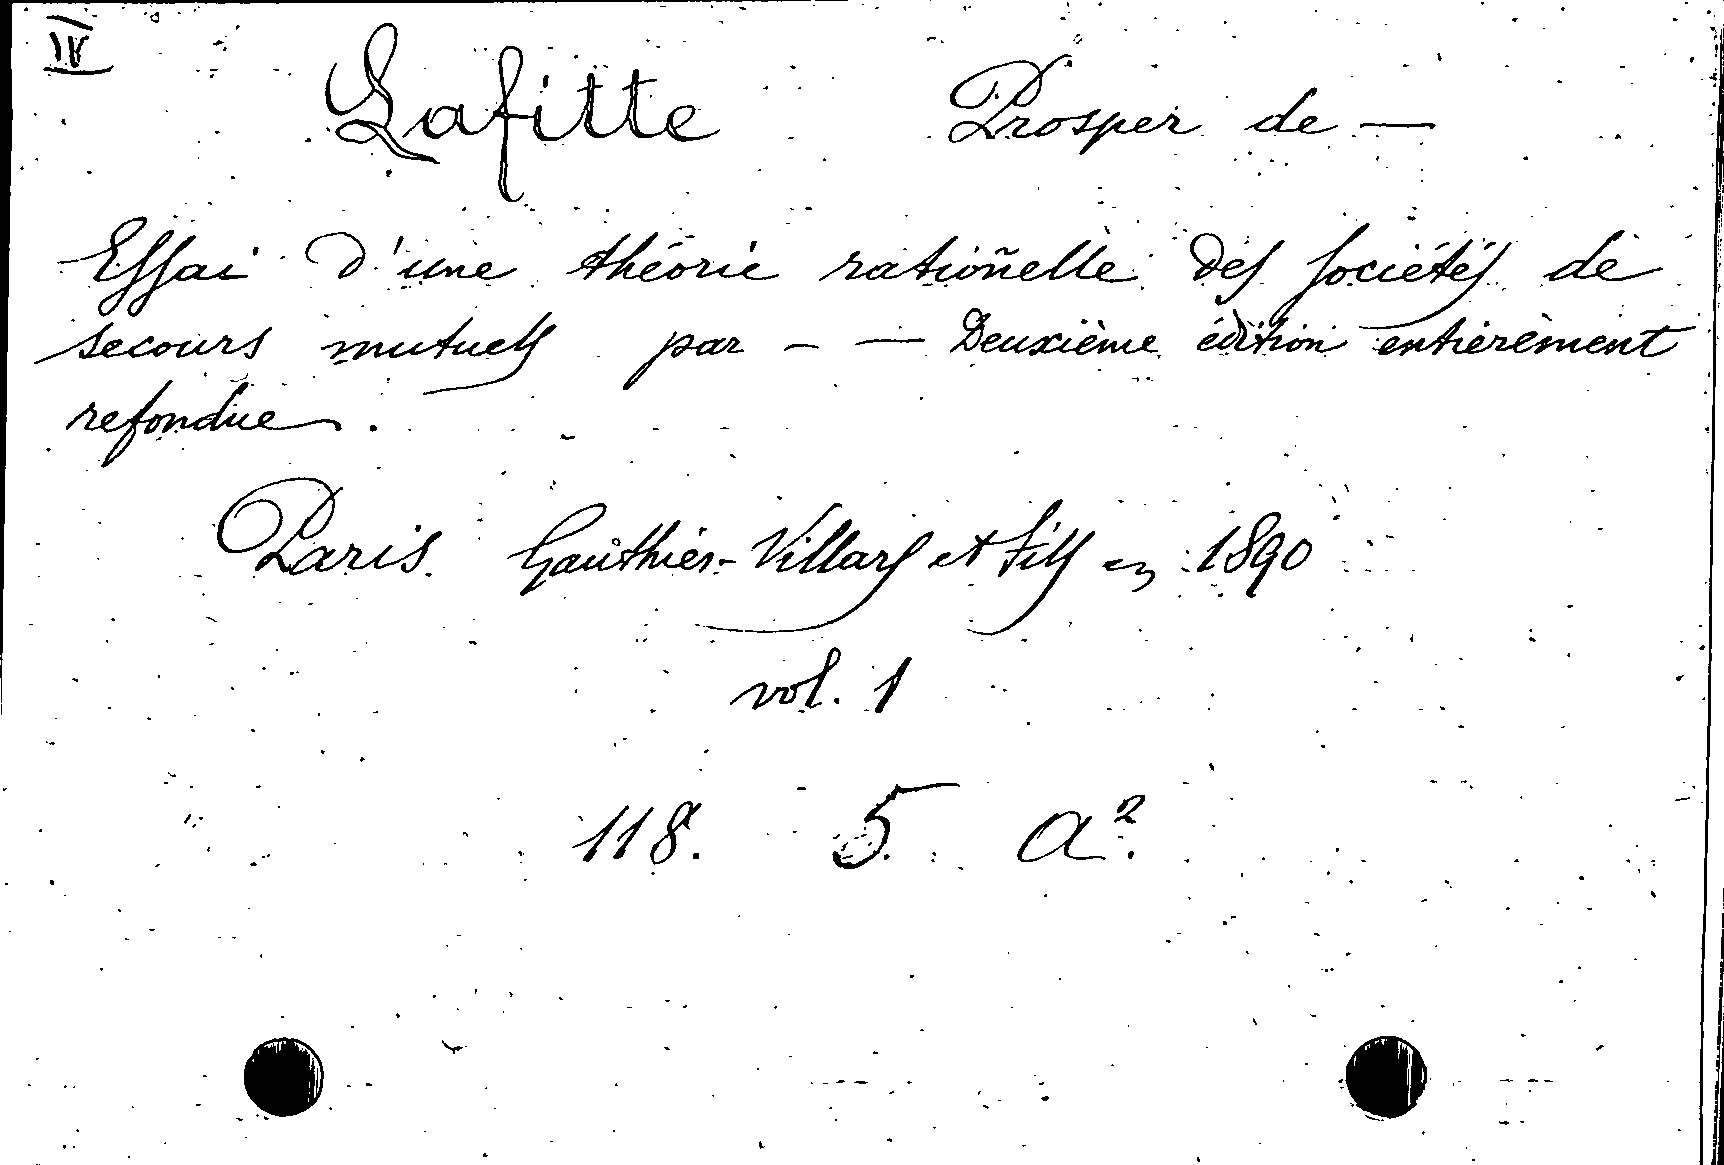 IV
Lafitte Prosper de —
Essai d'une théorie rationelle des sociétés de
secours mutuels par - — Deuxième édition entièrement
refondue.
Paris. Gauthier-Villars et fils en 1890
vol. 1
118. 5. a².